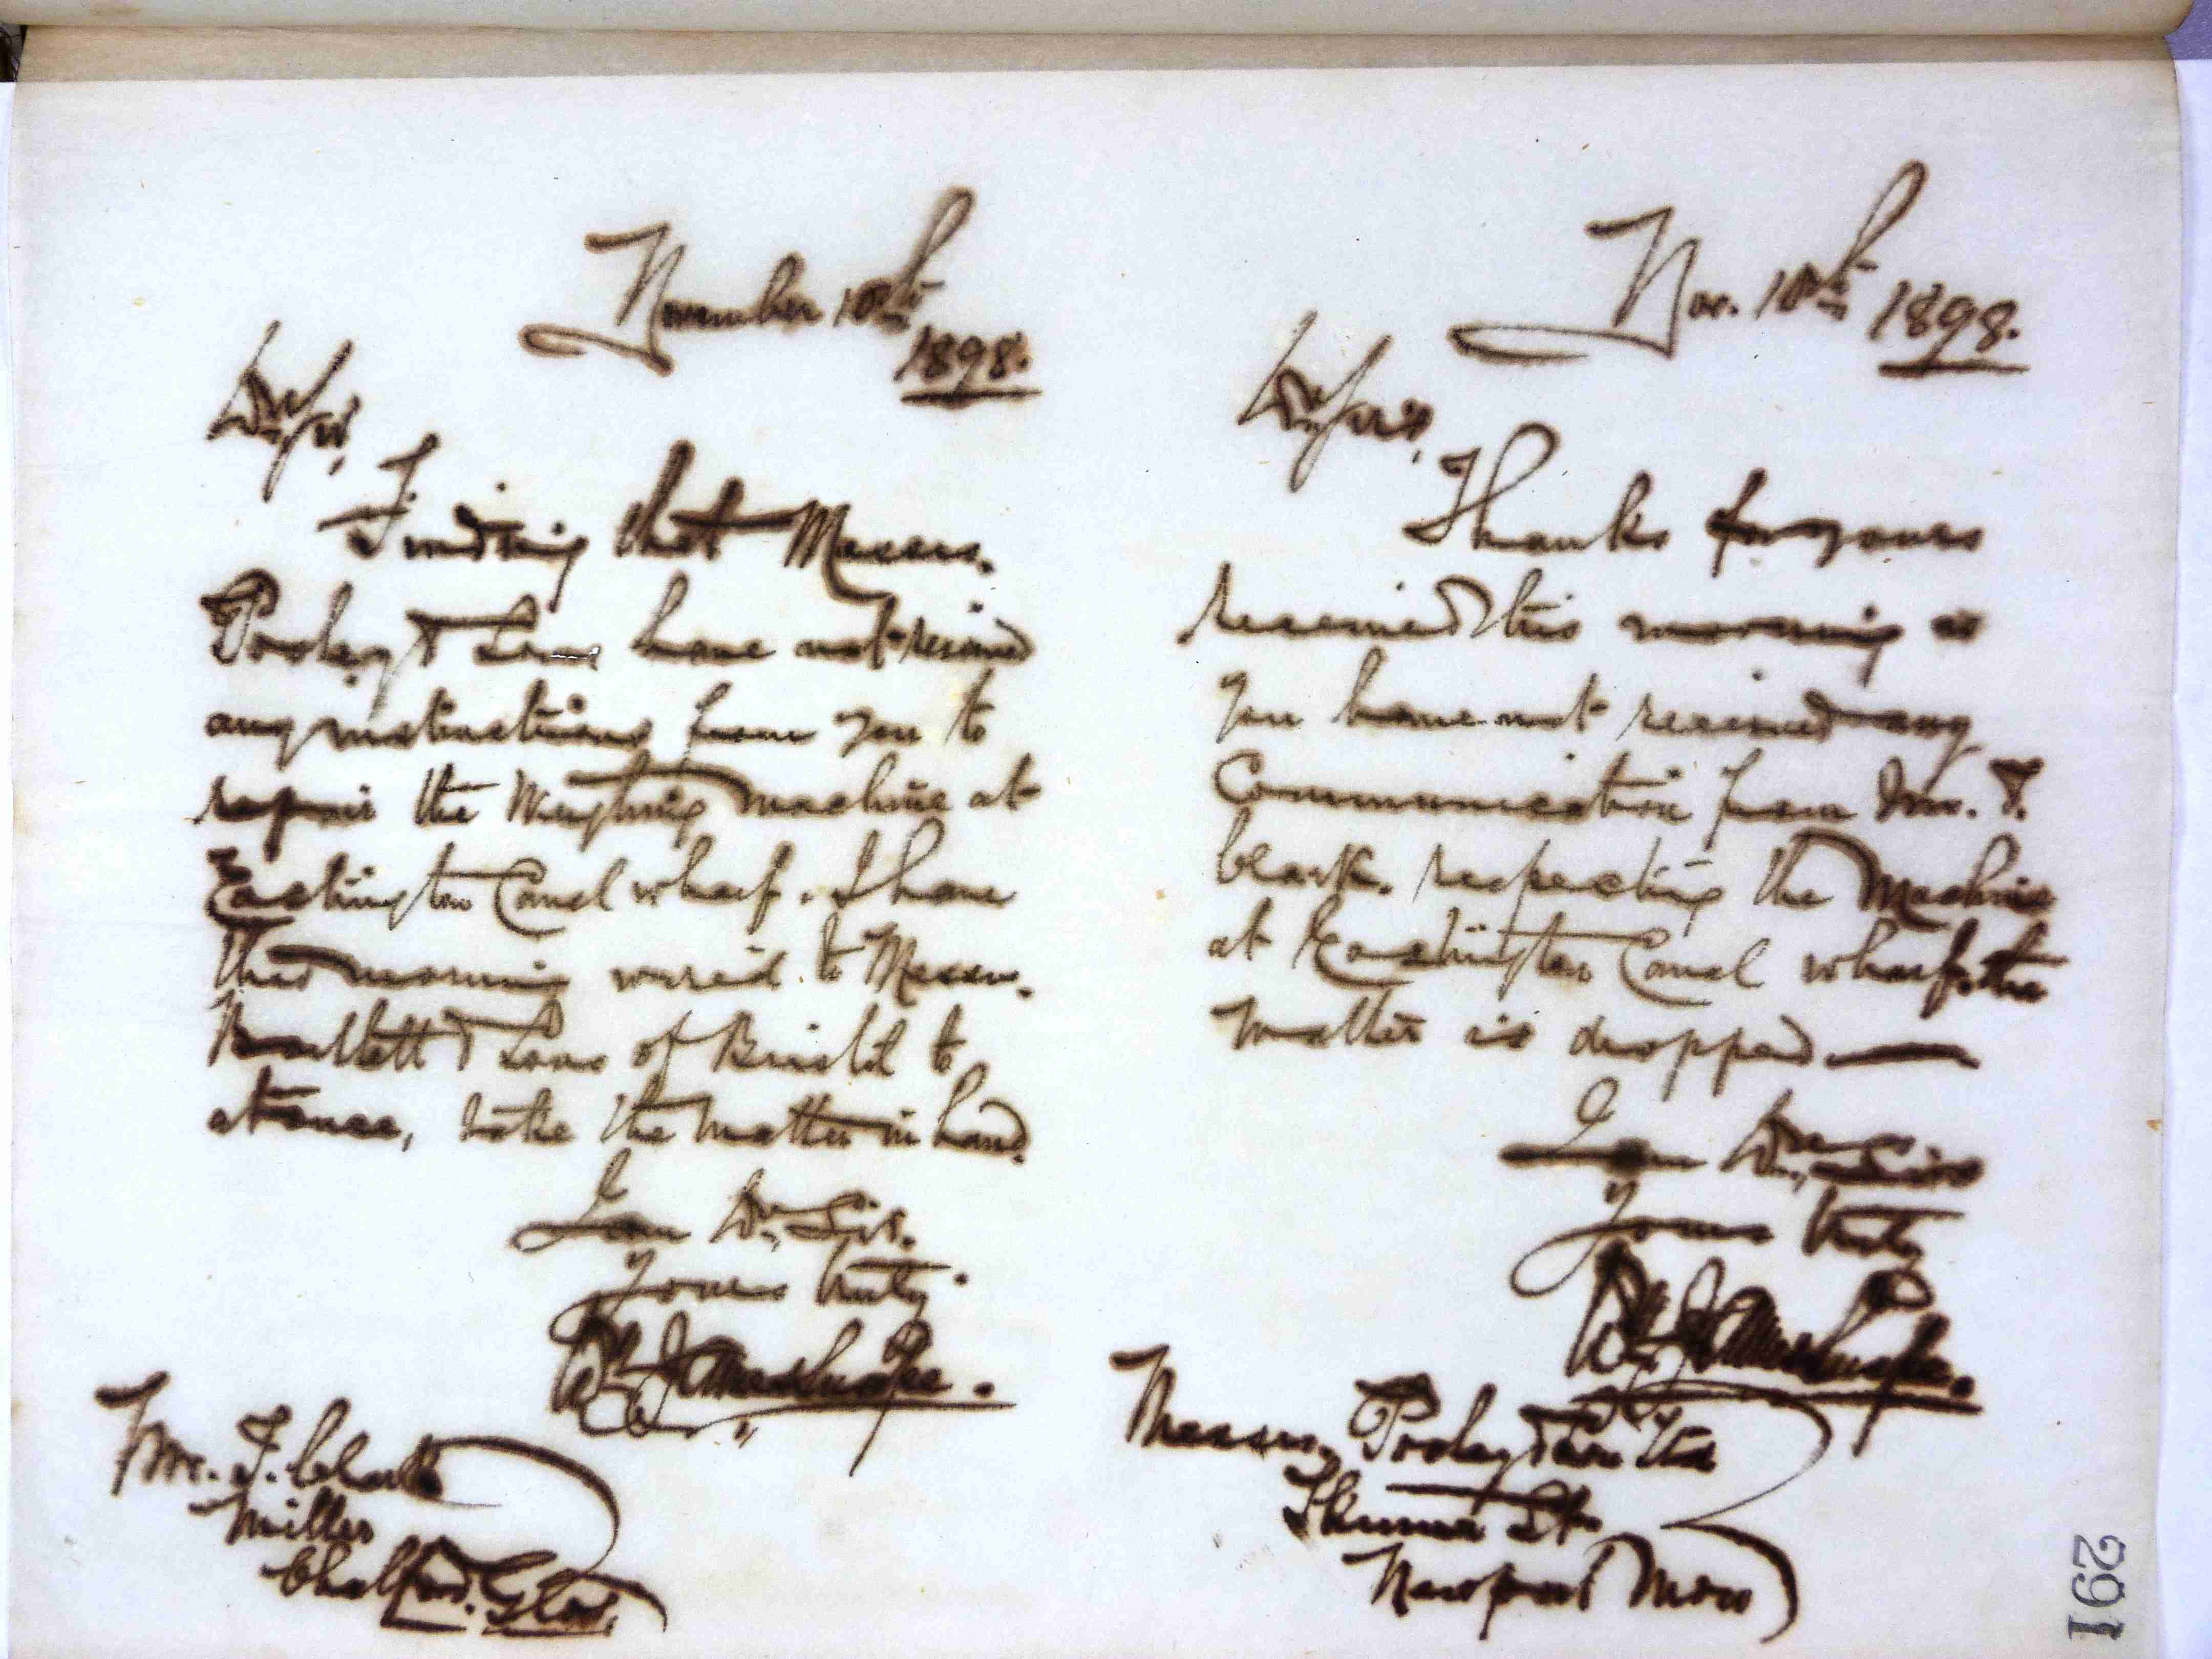 November 10th
1898.
Dr. Sir,
Finding that Messrs.
Pooley & Sons have not received
any instructions from you to
repair the Weighing machine at
Eastington Canal wharf. I have
this morning wired to Messrs.
Bartlett & Sons of Bristol to
at once, take the matter in hand.
I am Dr. Sir.
Yours truly.
Mr. F. Clark
Miller
Chalford. Glos.
Nov. 10th 1898.
Dr. Sirs,
Thanks for yours
received this morning as
you have not received any
Communication from Mr. F.
Clark. respecting the Machine
at Eastington Canal wharf, the
matter is dropped —
I am Dr. Sirs
Yours truly
Messrs. Pooley & Son Ltd
Skinner St.
Newport Mon
291